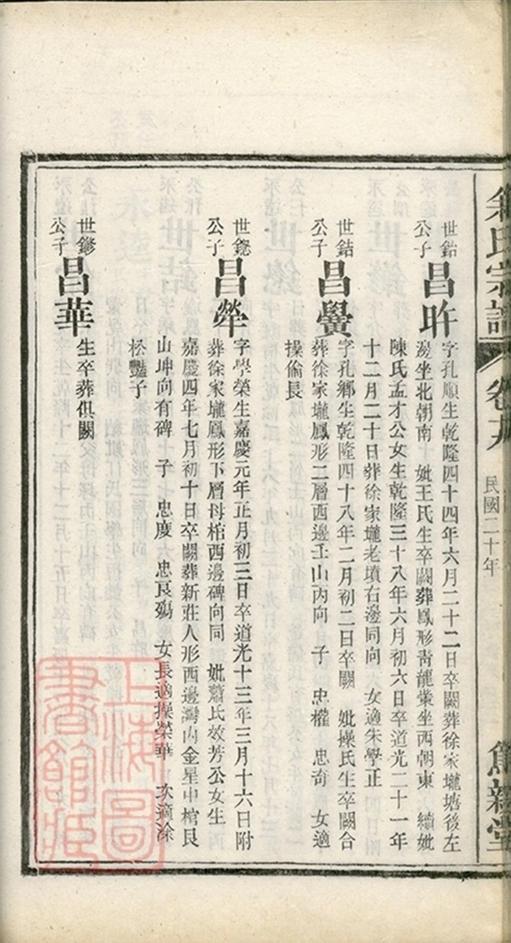 氏宗譜
卷九
民國二十年
世鉛公子
昌昨
字孔順生乾隆四十四年六月二十二日卒闕葬徐家壠塘後左
邊坐北朝南 妣王氏生卒闕葬鳳形靑龍嘴坐西朝東 續妣
陳氏孟才公女生乾隆三十八年六月初六日卒道光二十一年
十二月二十日葬徐家壠老墳右邊同向 女適朱學正
世鋯公子
昌黌
字孔鄉生乾隆四十八年二月初二日卒闕 妣操氏生卒闕合
葬徐家壠鳳形二層西邊壬山丙向 子 忠權 忠奇 女適
操偷長
公子
昌犖
字學榮生嘉慶元年正月初三日卒道光十三年三月十六日附
葬徐家壠鳳形下層母棺西邊碑向同 妣蕭氏效芳公女生
嘉慶四年七月初十日卒闕葬新莊人形西邊灣內金星中棺艮
山坤向有碑 子 忠慶 忠良殤 女長適操榮華 次適涂
松豔子
公子
昌華
生卒葬俱闕
上海圖書館藏